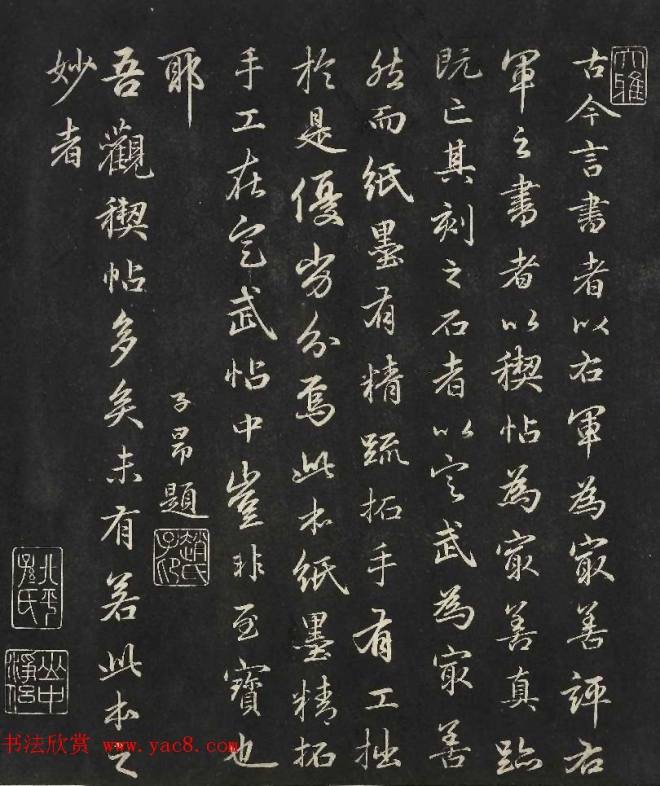 大雅
古今言書者以右軍為冣善評右
軍之書者以稧帖為冣善真跡
既亡其刻之石者以定武為冣善
然而紙墨有精疏拓手有工拙
於是優劣分焉此本紙墨精拓
手工在定武帖中豈非至寶也
耶
子昂題
趙氏子昂
吾觀稧帖多矣未有若此本之
妙者
北平孫氏
书法欣赏 www.yac8.com